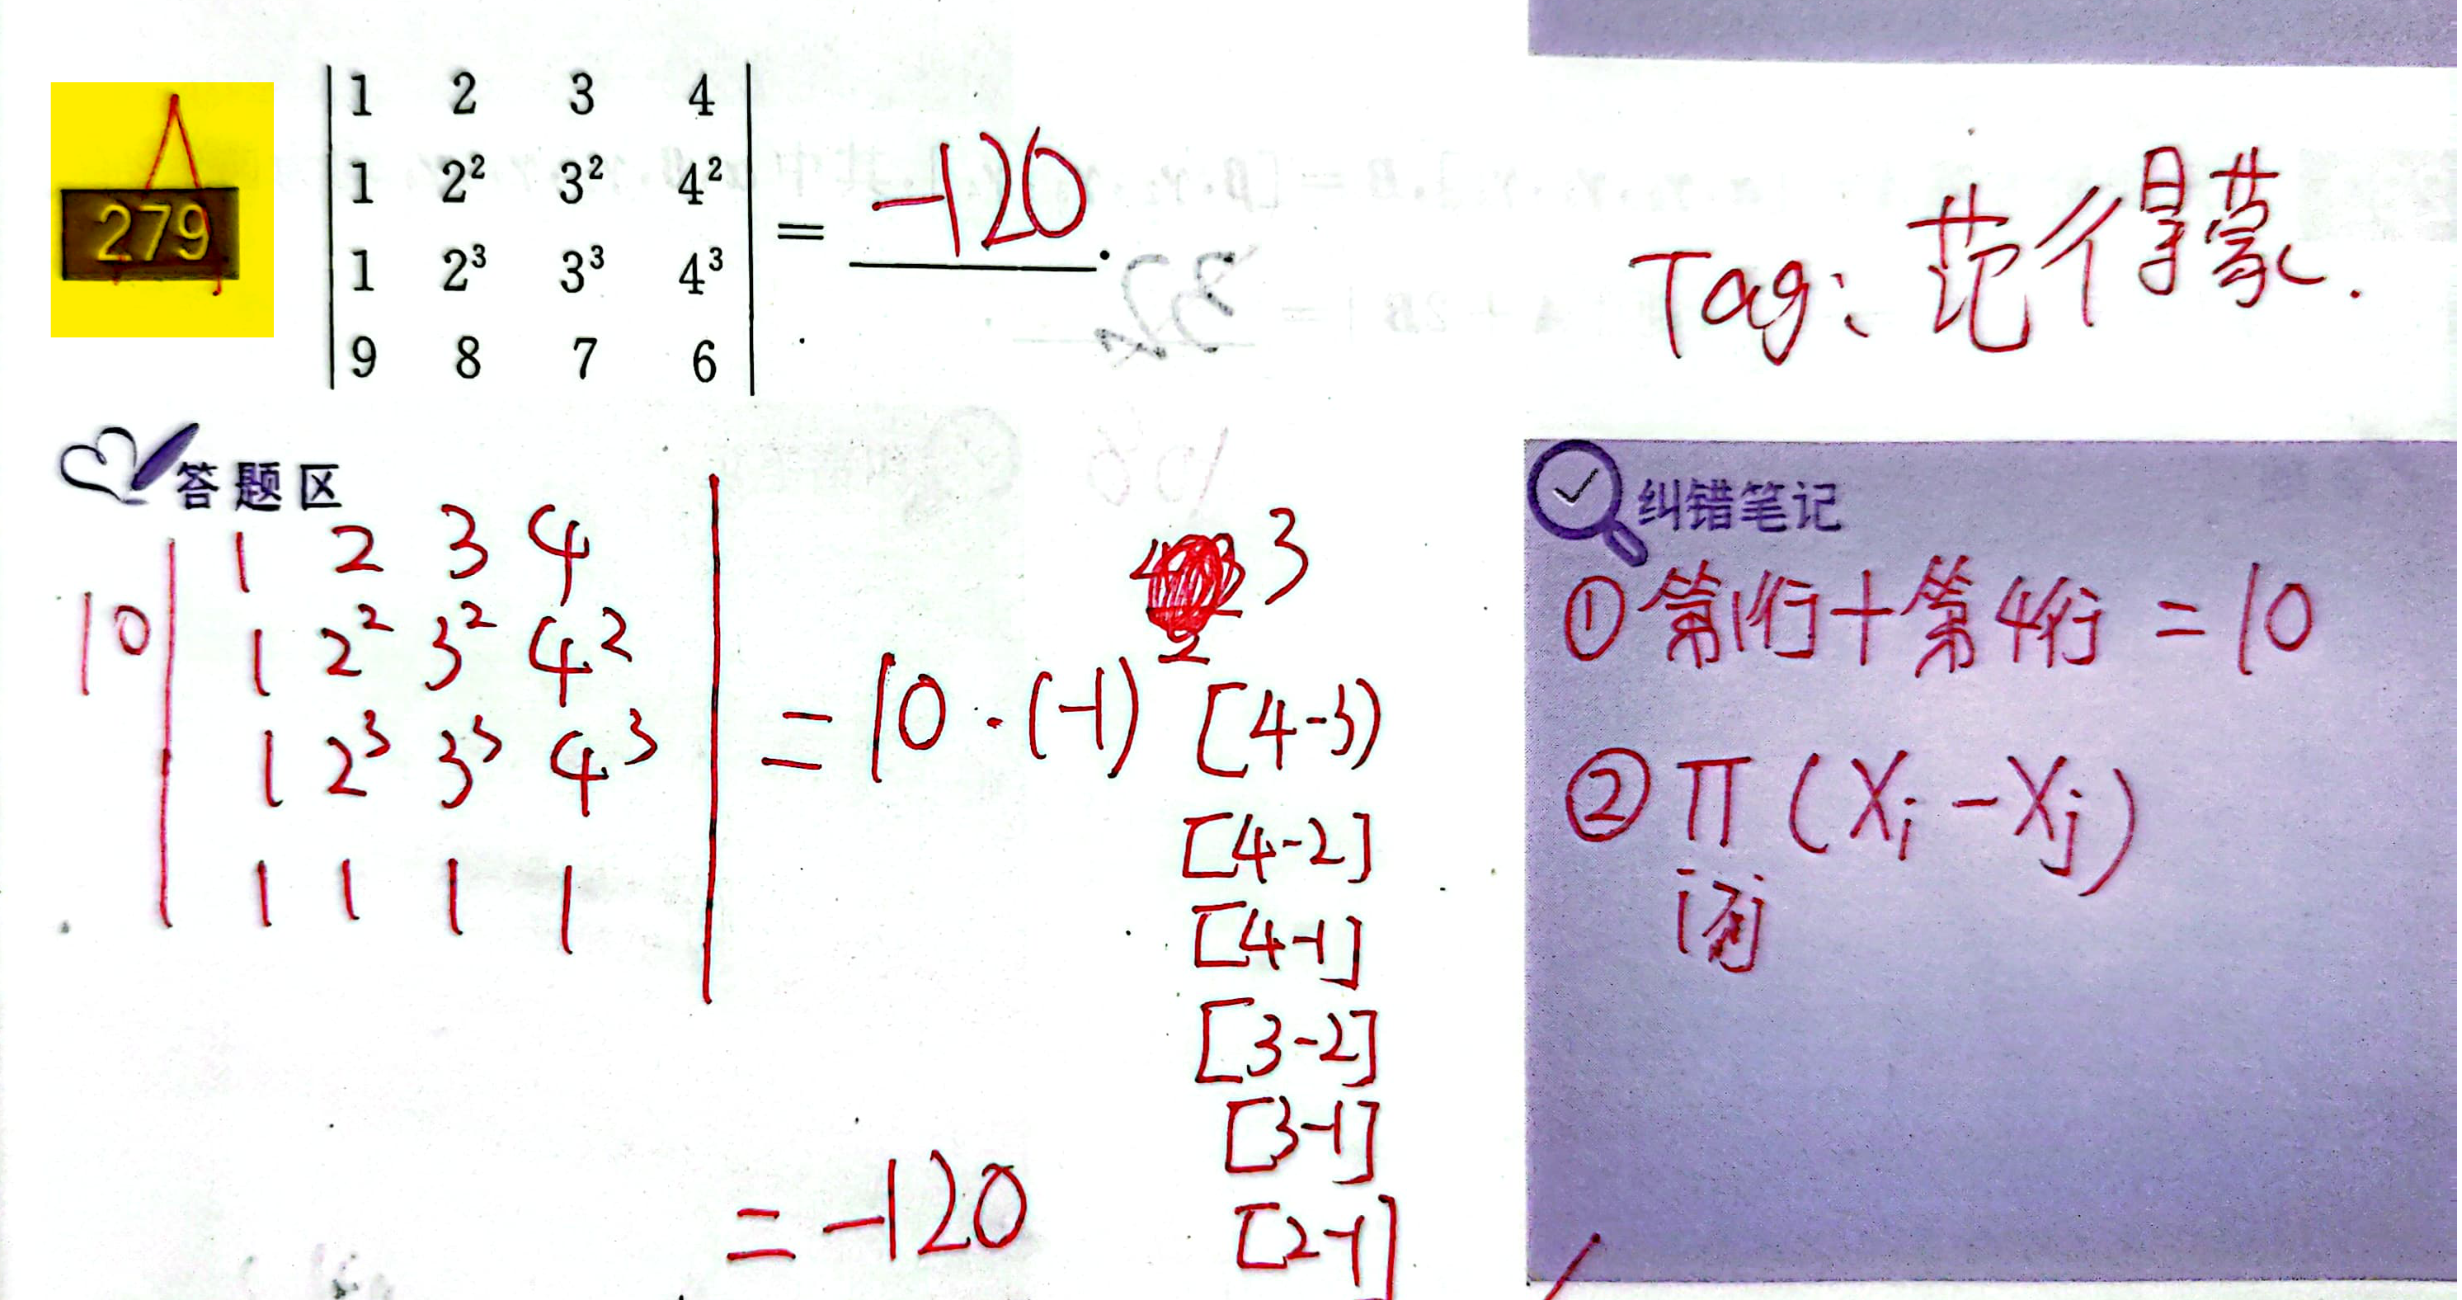 279
1 2 3 4
1 2² 3² 4²
1 2³ 3³ 4³
9 8 7 6
= -120.
Tag: 范得蒙.
答题区
10 | 1 2 3 4
1 2² 3² 4²
1 2³ 3³ 4³
1 1 1 1 |
= 10 · (-1)³ [4-3)
[4-2]
[4-1]
[3-2]
[3-1]
[2-1]
= -120
纠错笔记
① 第1行+第4行 = 10
② Π (Xi - Xj)